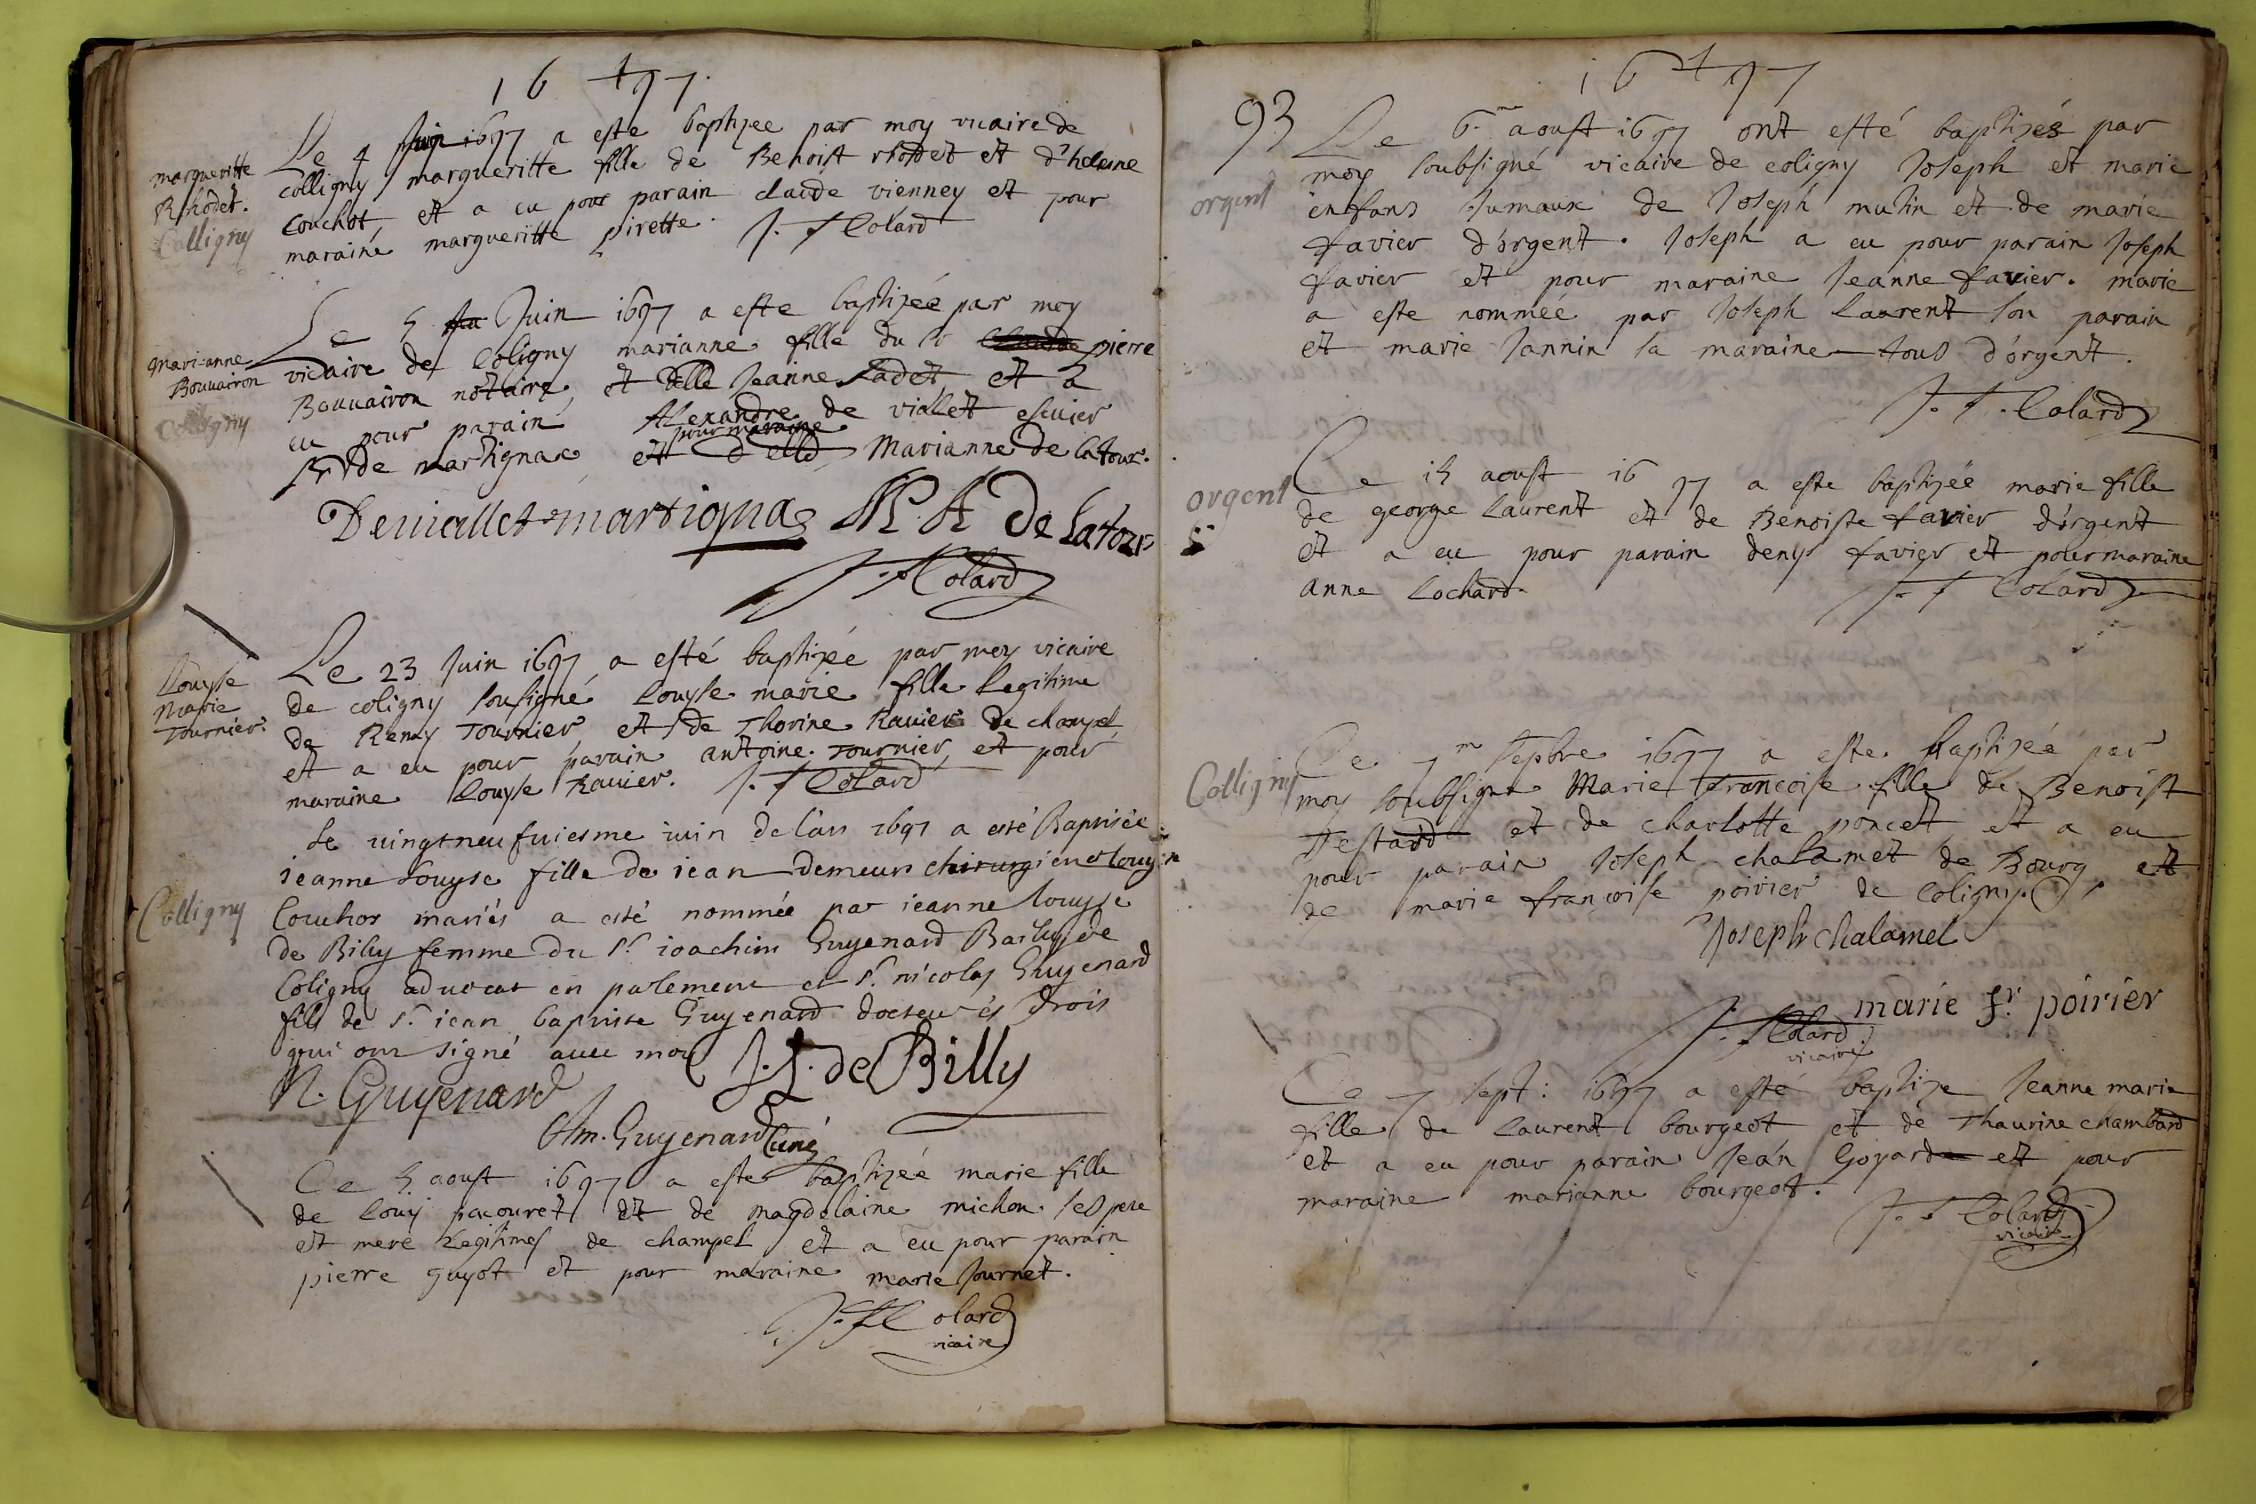 1697.
Le 4 Juin 1697 a este baptizee par moy vicaire de
margueritte
Rhodet.
Colligny
colligny margueritte fille de Benoist rhodet et d'helenne
Couchot, et a eu pour parain claude vienney et pour
maraine margueritte pirette. J. F Colard
Le 5 Juin 1697 a este baptizeé par moy
mari-anne
Bouvairon
Colligny
vicaire de Coligny marianne fille du Sr pierre
Bouuairon notaire, et delle Jeanne Cadet et a
eu pour parain Alexandre de viallet escuier
pour maraine
Sr de martignax et delle Marianne de latour.
Deuiallet martignas M. A De Latour
J. F Colard
Le 23 Juin 1697 a esté baptizée par moy vicaire
Louyse
Marie
Tournier.
de coligny sousigné Louyse marie fille legitime
de Remy Tournier et de Thorine Rauier de champel
et a eu pour parain antoine Tournier, et pour
maraine Louyse Rauier. J. F Colard
Le uingtneufuiesme iuin de l'an 1697 a esté Baptisée
ieanne Louyse fille de iean demeurs chirurgien et Louyse
Colligny
Couchot mariés a esté nommée par ieanne louyse
de Billy femme du Sr. ioachim Guyenard Bailly de
Coligny aduocat en parlement et Sr. nicolas Guyenard
fils de Sr. iean baptiste Guyenard docteur és drois
qui ont signé auec moy J. L. de Billy
N. Guyenard
Am. Guyenard Curé
Ce 5 aoust 1697 a este baptizeé marie fille
de Louy pacouret et de magdelaine michon ses pere
et mere legitimes de champel et a eu pour parain
pierre guyot et pour maraine marie Journet.
J. F Colard
vicaire
1697
93
Le 6.me aoust 1697 ont esté baptizés par
moy soubsigné vicaire de coligny Joseph et marie
orgent
enfans Jumaux de Joseph mutin et de marie
favier d'orgent. Joseph a eu pour parain Joseph
favier et pour maraine Jeanne favier. marie
a este nommeé par Joseph Laurent son parain
et marie Jannin sa maraine tous d'orgent.
J. F. Colard
Ce 15 aoust 1697 a este baptizeé marie fille
orgent
de george Laurent et de Benoiste favier d'orgent
et a eu pour parain denys favier et pour maraine
anne Lochard. J. F Colard
Ce 7m sepbre 1697 a este baptizeé par
Colligny
moy soubsigne Marie francoise fille de Benoist
Testard et de charlotte poncet, et a eu
pour parain Joseph chalamet de Bourg et
de marie françoise poirier de Coligny.
Joseph chalamel
marie fr. poirier
J. F Colard
vicaire
Ce 7 sept: 1697 a esté baptize Jeanne marie
fille de Laurent bourgeot et de Thaurine chambard
et a eu pour parain Jean Goyard et pour
maraine marianne bourgeot.
J. F Colard
vicaire